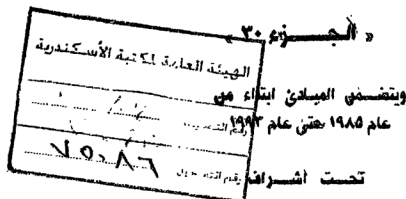 « الجـــــزء ٣٠ »
الهيئة العامة لمكتبة الأسكندرية
ويتضـــمن المبادئ ابتداء من
عام ١٩٨٥ حتى عام ١٩٩٣
رقم التسجيل ٧٥٠٨٦
تحـــت أشـــراف